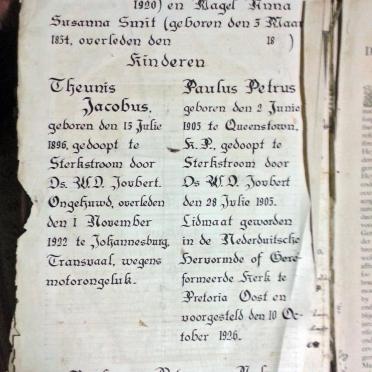 1920) en Magel Anna
Susanna Smit (geboren den 3 Maar
1854, overleden den 18 )
Kinderen
Theunis
Jacobus,
geboren den 15 Julie
1896, gedoopt te
Sterkstroom door
Ds. W.D. Joubert.
Ongehuwd, overleden
den 1 November
1922 te Johannesburg,
Transvaal, wegens
motorongeluk.
Paulus Petrus
geboren den 2 Junie
1905 te Queenstown,
K.P., gedoopt te
Sterkstroom door
Ds W.D. Joubert
den 28 Julie 1905.
Lidmaat geworden
in de Nederduitsche
Hervormde of Gere-
formeerde Kerk te
Pretoria Oost en
voorgesteld den 10 Oc-
tober 1926.